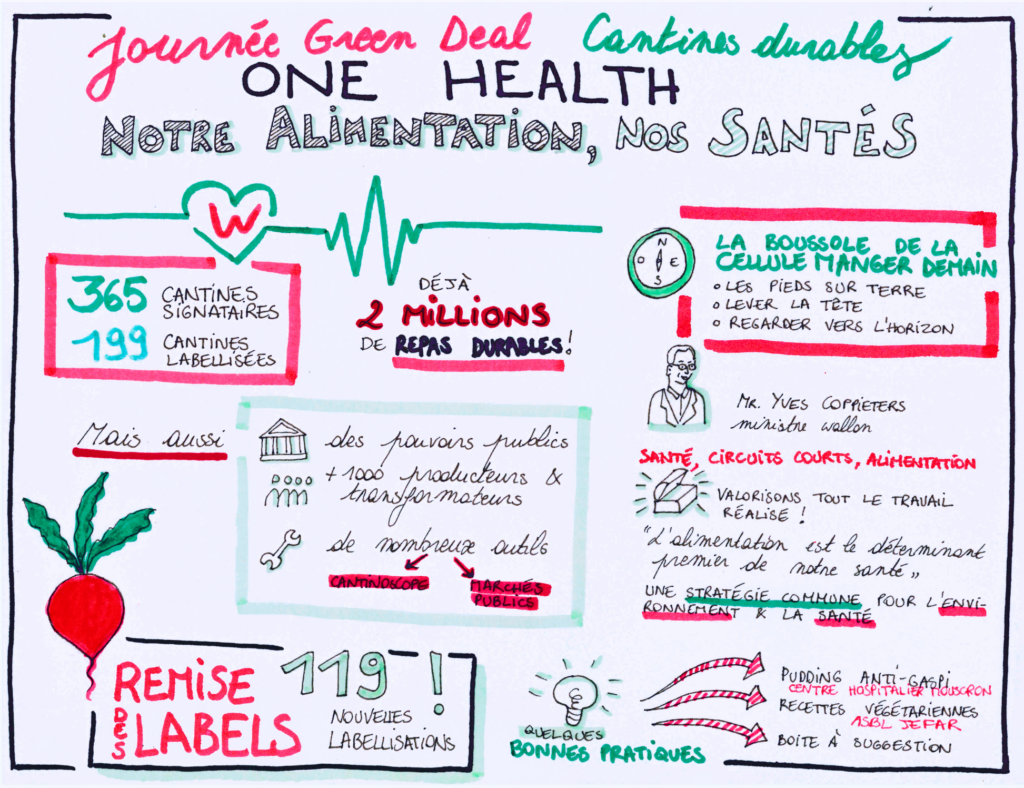 Journée Green Deal Cantines durables
ONE HEALTH
NOTRE ALIMENTATION, NOS SANTÉS
W
365 CANTINES
SIGNATAIRES
199 CANTINES
LABELLISÉES
DÉJÀ
2 MILLIONS
DE REPAS DURABLES!
N
O E
S
LA BOUSSOLE DE LA
CELLULE MANGER DEMAIN
o LES PIEDS SUR TERRE
o LEVER LA TÊTE
o REGARDER VERS L'HORIZON
Mr. YVES COPPIETERS
ministre wallon
SANTÉ, CIRCUITS COURTS, ALIMENTATION
VALORISONS TOUT LE TRAVAIL
RÉALISE !
"L'alimentation est le déterminant
premier de notre santé"
UNE STRATÉGIE COMMUNE POUR L'ENVI-
RONNEMENT & LA SANTÉ
Mais aussi
des pouvoirs publics
+1000 producteurs &
transformateurs
de nombreux outils
CANTINOSCOPE
MARCHÉS
PUBLICS
REMISE
DES
LABELS
119 !
NOUVELLES
LABELLISATIONS
QUELQUES
BONNES PRATIQUES
PUDDING ANTI-GASPI
CENTRE HOSPITALIER MOUSCRON
RECETTES VÉGÉTARIENNES
ASBL JEFAR
BOITE À SUGGESTION